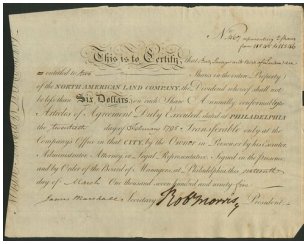 No.
This is to Certify that
is entitled to Five Shares in the entire Property
of the NORTH AMERICAN LAND COMPANY, the Dividend whereof shall not
be less than Six Dollars on each Share Annually conformably to
Articles of Agreement Duly Executed dated at PHILADELPHIA
the twentieth day of February 1795 Transferable only at the
Company's Office in that CITY, by the Owner in Person or by his Executor
Administrator Attorney or Legal Representative Signed in the presence
and by Order of the Board of Managers at Philadelphia this sixteenth
day of March One thousand seven hundred and ninety five
James Marshall Secretary Robt Morris President